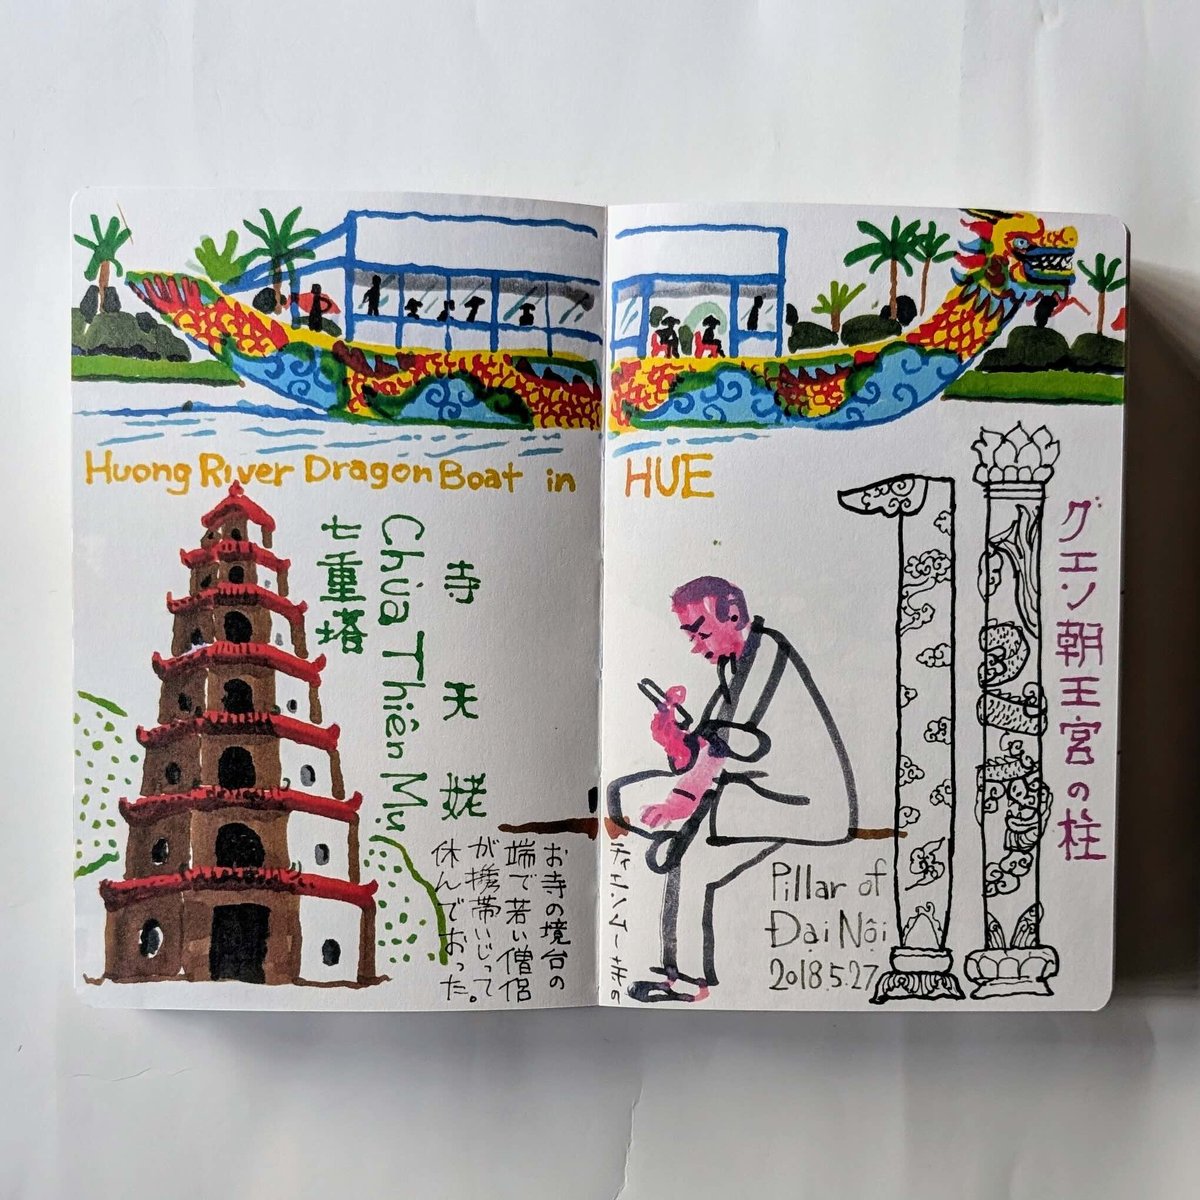 Huong River Dragon Boat in HUE
寺天姥
Chùa Thiên Mụ
七重塔
お寺の境台の
端で若い僧侶
が携帯いじって
休んでおった。
グエン朝王宮の柱
Pillar of
Đại Nội
2018.5.27